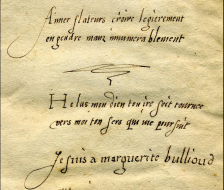 Aimer flateurs croire legierement
engendre maux innumerablement
Helas mon dieu ton ire soit tournee
vers moi ton serf qui me poursuit
Je suis a marguerite bullioud